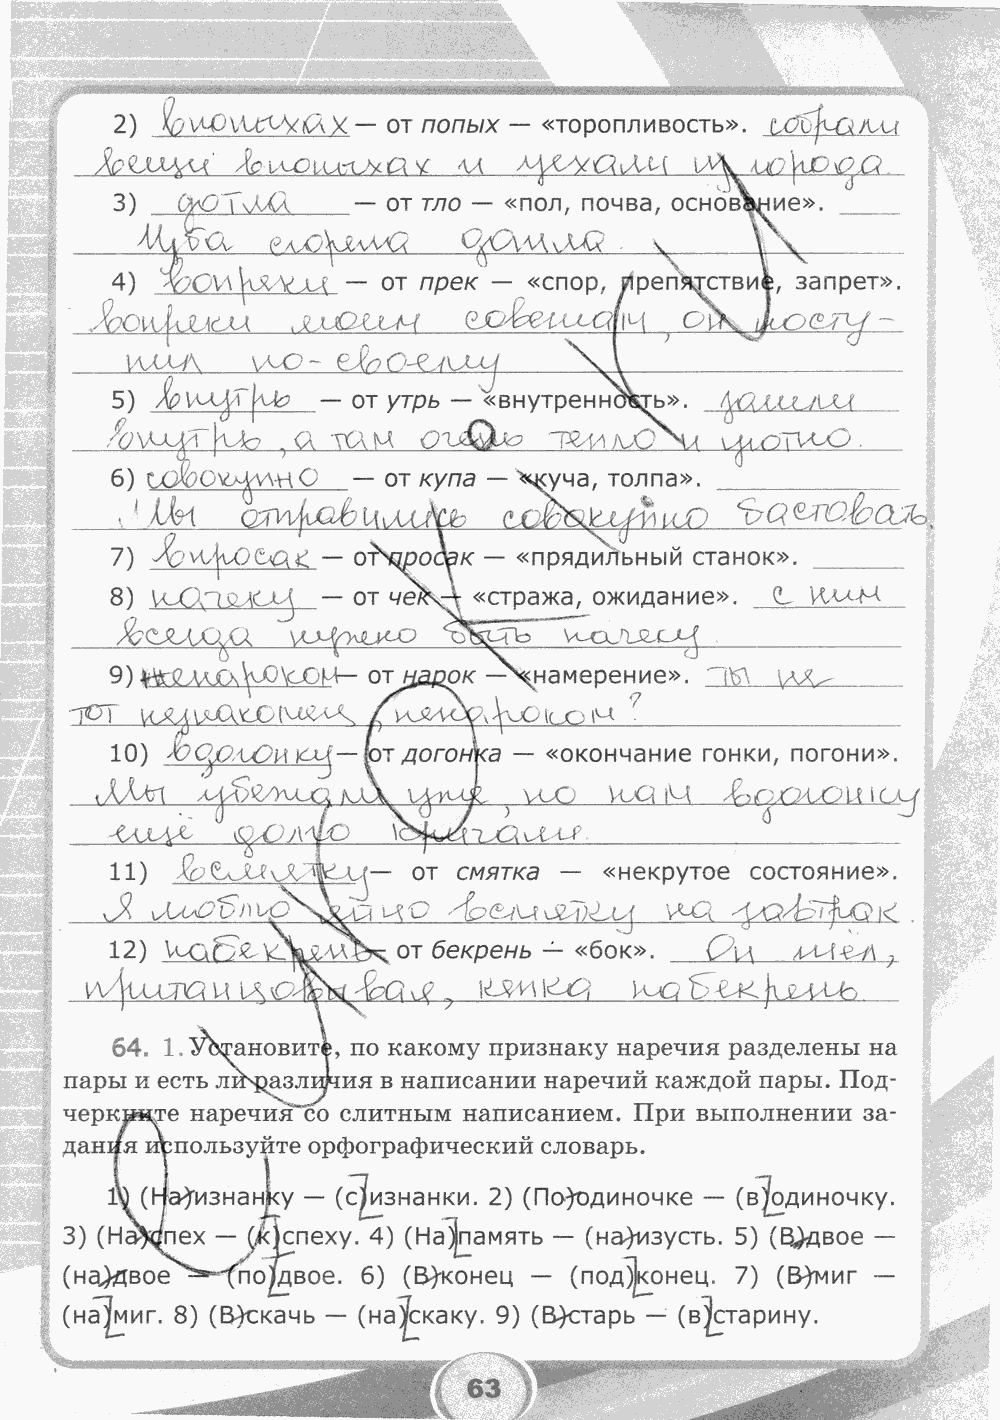 2) впопыхах — от попых — «торопливость». собрали
вещи впопыхах и уехали из города.
3) дотла — от тло — «пол, почва, основание».
Изба сгорела дотла.
4) вопреки — от прек — «спор, препятствие, запрет».
вопреки моим советам, он посту-
пил по-своему
5) внутрь — от утрь — «внутренность». зашли
внутрь, а там очень тепло и уютно.
6) совокупно — от купа — «куча, толпа».
Мы отправились совокупно бастовать.
7) впросак — от просак — «прядильный станок».
8) начеку — от чек — «стража, ожидание». с ним
всегда нужно быть начеку.
9) ненароком — от нарок — «намерение». ты не
тот незнакомец, ненароком?
10) вдогонку — от догонка — «окончание гонки, погони».
Мы убежали уже, но нам вдогонку
ещё долго кричали.
11) всмятку — от смятка — «некрутое состояние».
Я люблю яйцо всмятку на завтрак.
12) набекрень — от бекрень — «бок». Он шёл,
пританцовывая, кепка набекрень.
64. 1. Установите, по какому признаку наречия разделены на
пары и есть ли различия в написании наречий каждой пары. Под-
черкните наречия со слитным написанием. При выполнении за-
дания используйте орфографический словарь.
1) (На)изнанку — (с)изнанки. 2) (По)одиночке — (в)одиночку.
3) (На)спех — (к)спеху. 4) (На)память — (на)изусть. 5) (В)двое —
(на)двое — (по)двое. 6) (В)конец — (под)конец. 7) (В)миг —
(на)миг. 8) (В)скачь — (на)скаку. 9) (В)старь — (в)старину.
63